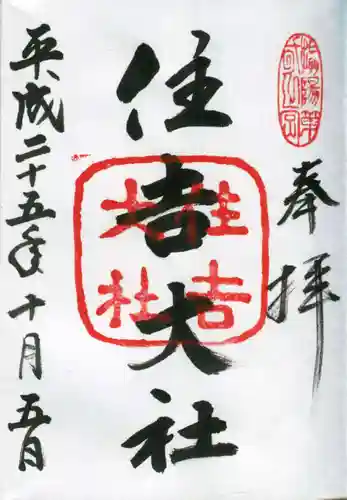 奉拝
住吉大社
住吉大社
平成二十五年十月五日